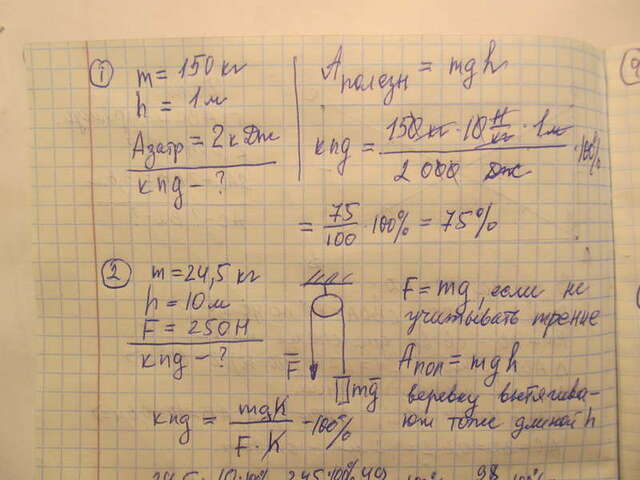 ① m = 150 кг
h = 1 м
Aзатр = 2 кДж
кпд – ?
Aполезн = mgh
кпд = 150 кг · 10 Н/кг · 1 м / 2000 Дж · 100%
= 75/100 · 100% = 75%
② m = 24,5 кг
h = 10 м
F = 250 Н
кпд – ?
F
mg
F = mg, если не
учитывать трение
Aпол = mgh
веревку вытягива-
ют тоже длиной h
кпд = mgh / F · h · 100%